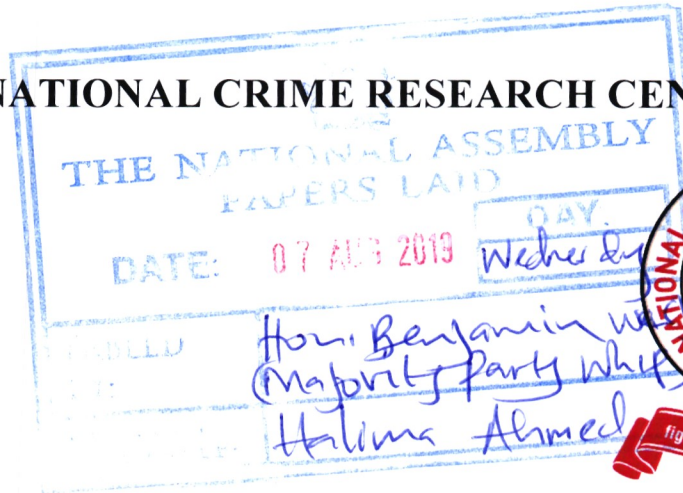 NATIONAL CRIME RESEARCH CEN
THE NATIONAL ASSEMBLY
PAPERS LAID
DAY.
DATE: 07 AUG 2019 Wednesday
Hon. Benjamin
(Majority Party Whip
Halima Ahmed
NATIONAL
fig